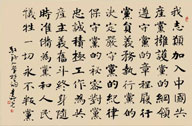 我志願加入中國共
產黨擁護黨的綱領
遵守黨的章程履行
黨員義務執行黨的
決定嚴守黨的紀律
保守黨的秘密對黨
忠誠積極工作為共
產主義奮斗終身隨
時準備為黨和人民
犧牲一切永不叛黨